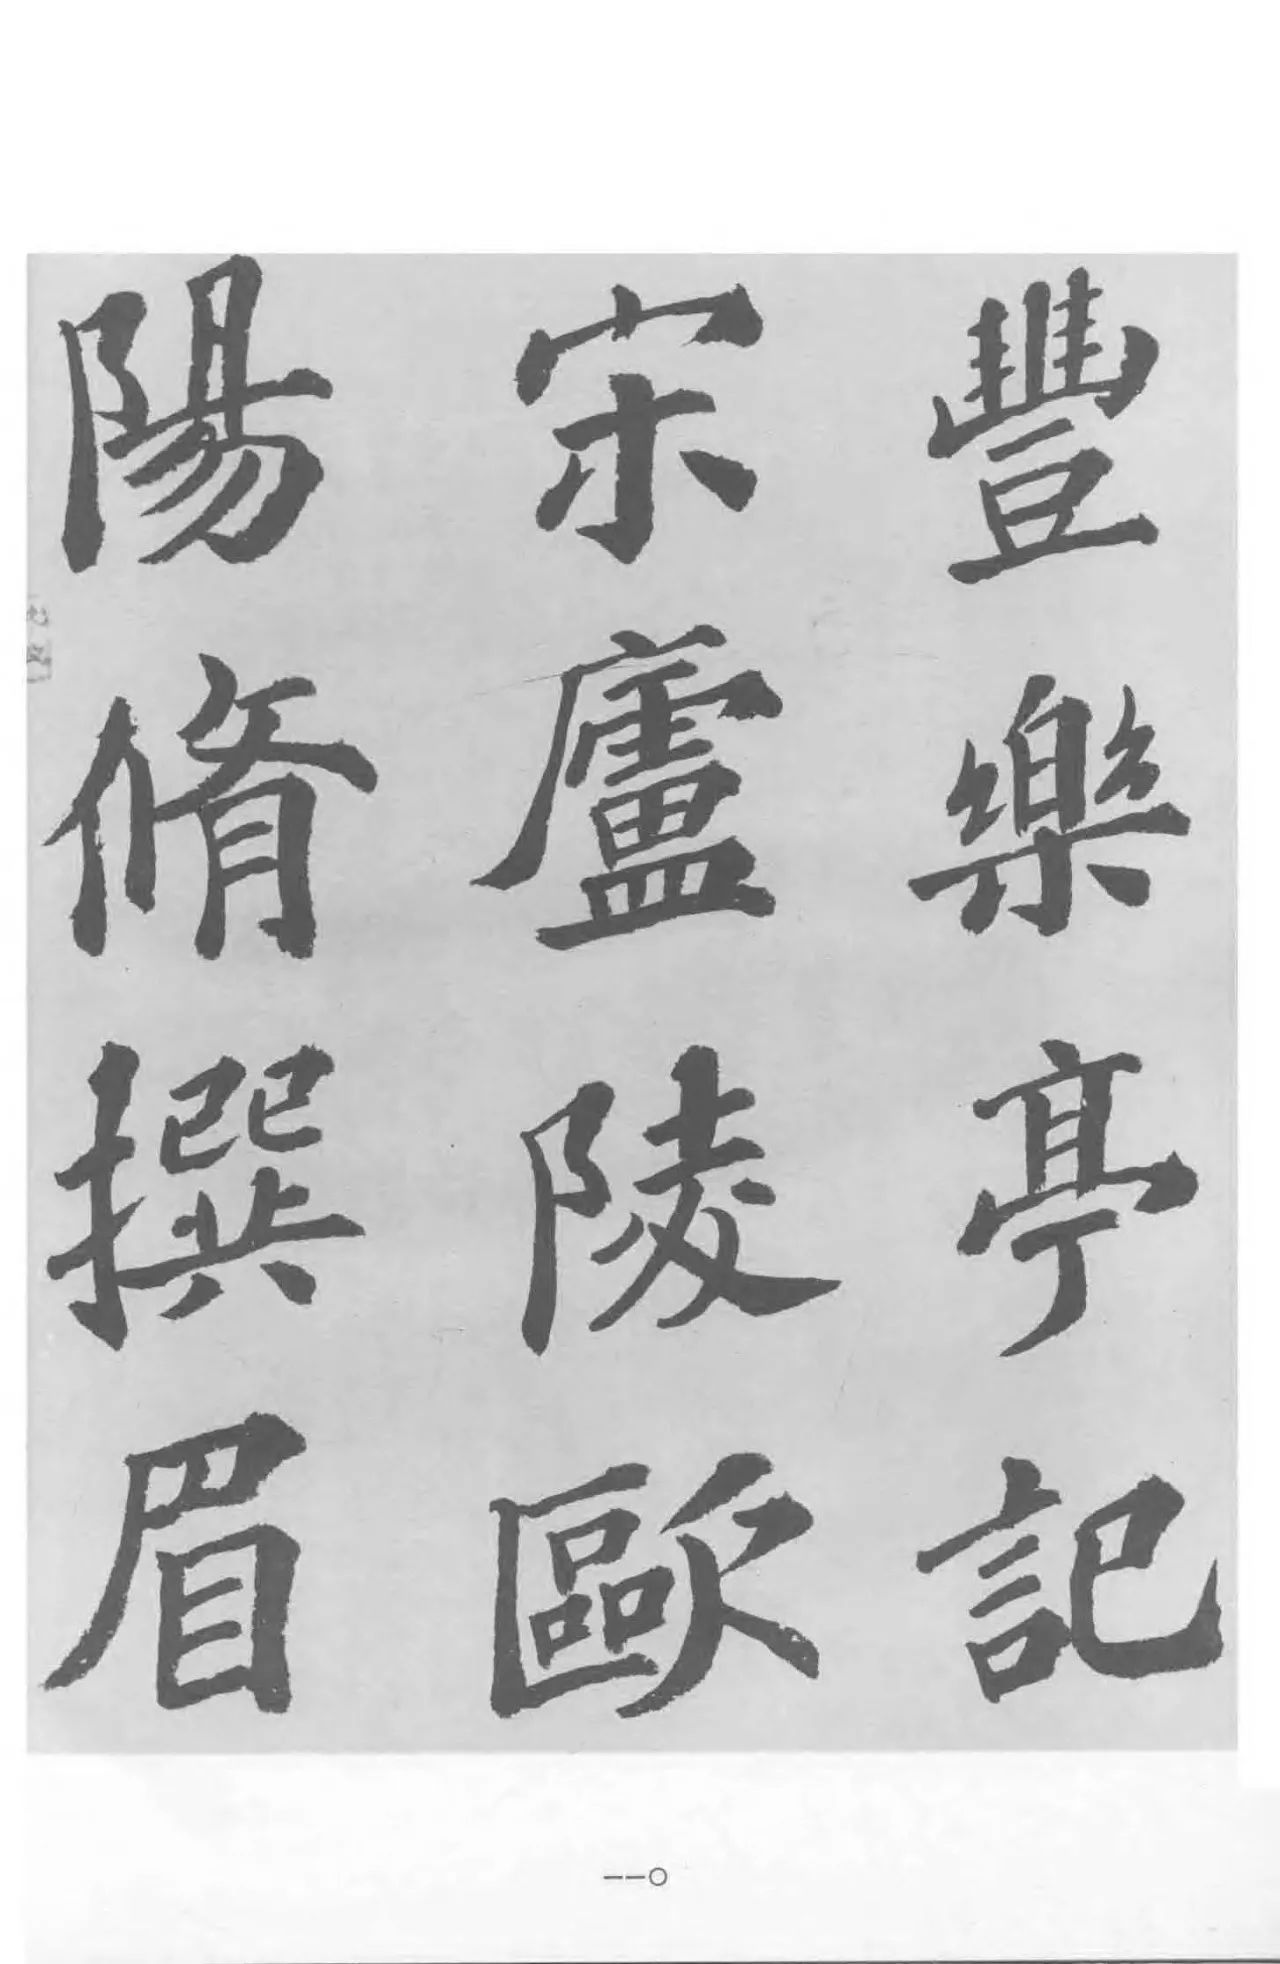 豐樂亭記
宋廬陵歐
陽脩撰眉
一一〇